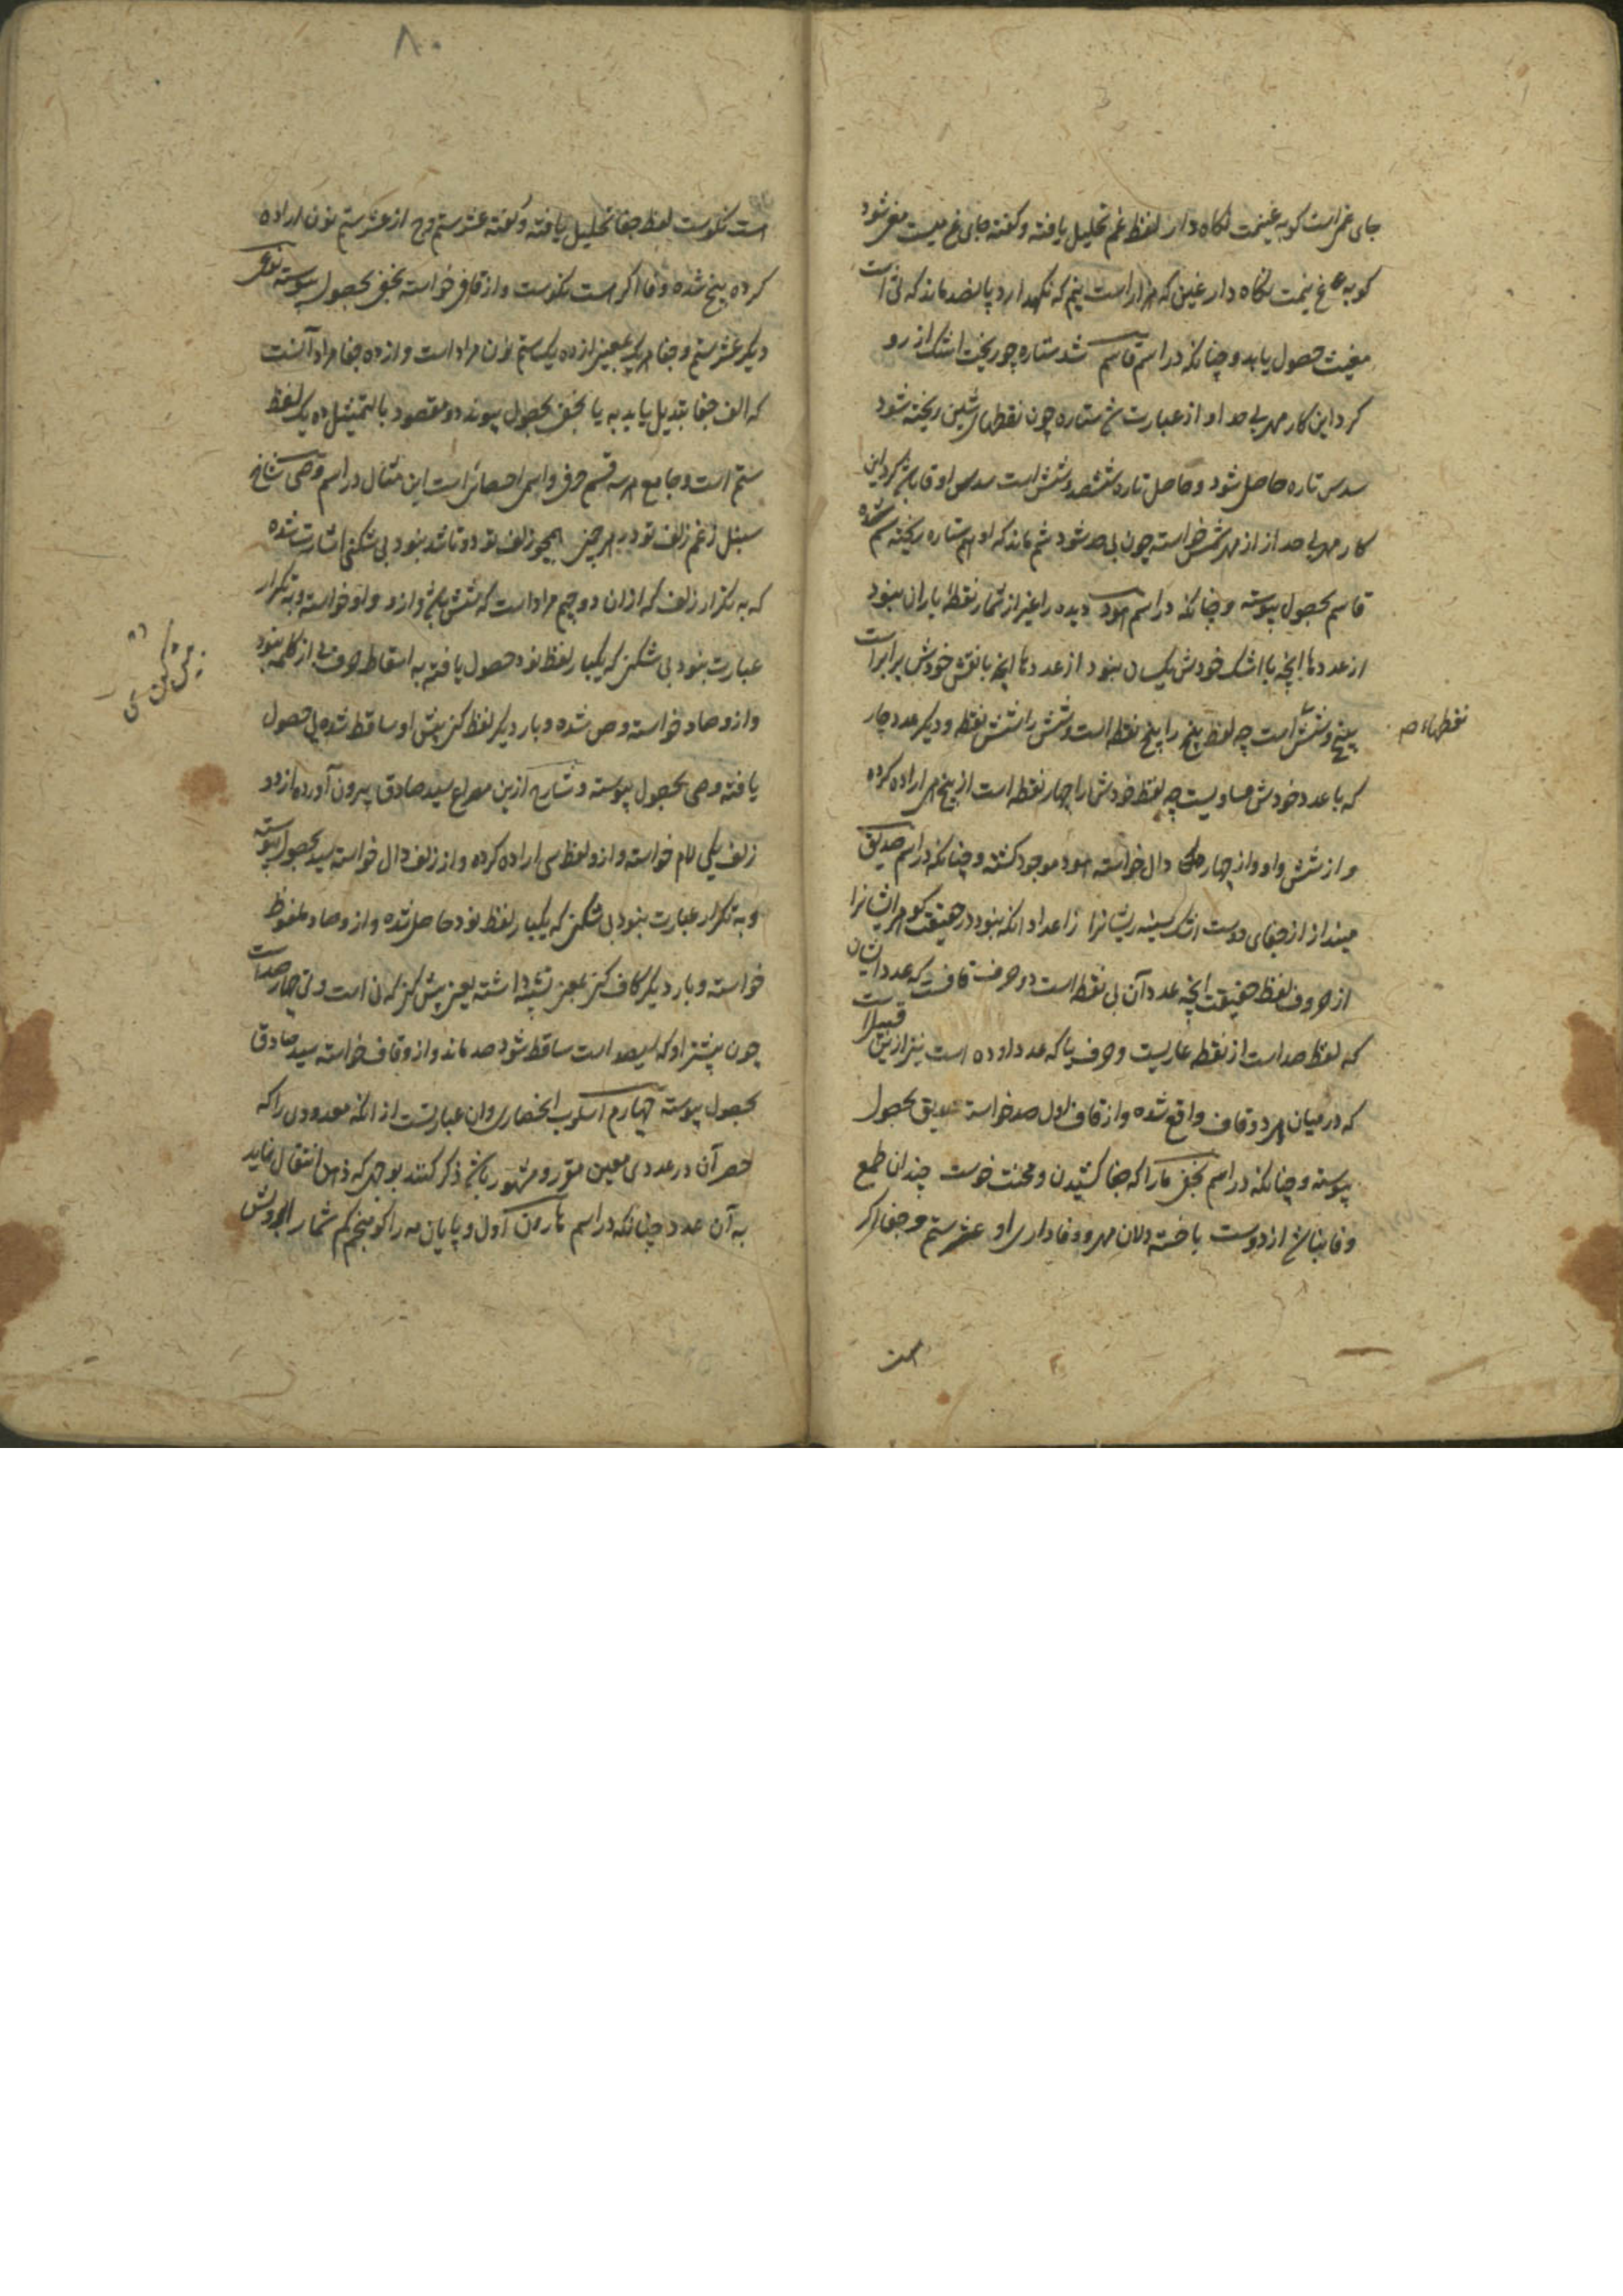 جای غم است کو به غنیمت نگاه دار لفظ غم تحلیل یافته و گفته جای غ نیست مغی شود
کو به غ نیمت نگاه دار غین که هزار است نیم که نگهدارد پانصد ماند که ثی است
مغیث حصول یابد و چنانکه در اسم قاسم شد ستاره چو ریخت اشک از رو
کرد این کار مهر بی حد او از عبارت ش ستاره چون نقطهای شین ریخته شود
سدس تاره حاصل شود و حاصل تاره ششصد و شش است سدس او قا باشد کرد این
کار مهر بی حد از از مهر شمس خواسته چون بی حد شود شم ماند که او هم ستاره ریخته سم شده
قاسم بحصول پیوسته و چنانکه در اسم هود دیده را غیر از شمار نقطه باران نبود
از عددها آنچه با اشک خودش یکسان نبود از عددها آنچه با نقش خودش برابر است
پنج و شش است چه لفظ پنج را پنج نقطه است و شش را شش نقطه و دیگر عدد چار
که با عدد خودش مساویست چه لفظ خودش را چهار نقطه است از پنج هی اراده کرده
و از شش واو و از چهار دال خواسته هود موجود گشته و چنانکه در اسم صدیق
مینداز از جفای دوست اشک سینه ریشانرا ز اعداد آنکه نبود در حقیقت کو مر ایشانرا
از حروف لفظ حقیقت آنچه عدد آن بی نقطه است دو حرف قافست که عدد ایشان
که لفظ صد است از نقطه عاریست و حرف یا که عدد او ده است نیز ازین قبیل است
که در میان هر دو قاف واقع شده و از قاف اول صد خواسته صدیق بحصول
پیوسته و چنانکه در اسم نجفی ما را که جفا کشیدن و محنت خوست چندان طمع
وفا نباشد از دوست با خسته دلان مهر و وفاداری او عشر ستم و جفا اگر
است
نقطهاء ص
۸۰
است نکوست لفظ جفا تحلیل یافته و گفته عشر ستم و ج از عشر ستم نون اراده
کرده نج شده و فا اگر است نکوست و از قاف خواسته نجفی بحصول پیوسته نوعی
دیگر عشر ستم و جفا هر یک بمعنی از ده یک ستم نون مراد است و از ده جفا مراد آنست
که الف جفا تبدیل یابد به یا نجفی بحصول پیوندد و مقصود بالتمثیل ده یک لفظ
ستم است و جامع هر سه قسم حرفی و اسمی احصائی است این مثال در اسم وصی شاخ
سنبل ز غم زلف تو در هر چمنی همچو زلف تو دو تا شد بنود بی شکنی اشارت شده
که به تکرار زلف که از ان دو جیم مراد است که شش باشد و از و واو خواسته و به تکرار
عبارت بنود بی شکنی که یکبار لفظ نود حصول یافته به اسقاط حرف بی از کلمه بنود
و از و صاد خواسته وص شده و بار دیگر لفظ کنی پیش او ساقط شده یی حصول
یافته وصی بحصول پیوسته و شارح ازین مصراع سید صادق بیرون آورده از دو
زلف یکی لام خواسته و ازو لفظ سی اراده کرده و از زلف دال خواسته سید بحصول پیوسته
و به تکرار عبارت بنود بی شکنی که یکبار لفظ نود حاصل شده و از و صاد ملفوظ
خواسته و بار دیگر کاف کنی بمعنی تشبیه داشته یعنی پیش کنی که ن است و نی چارصد است
چون بیشتر او که سیصد است ساقط شود صد ماند و از و قاف خواسته سید صادق
بحصول پیوسته چهارم اسلوب انحصاری و آن عبارتست از آنکه معدودی را که
حصر آن در عددی معین مقرر و مشهور باشد ذکر کنند بوجهی که ذهن انتقال نماید
به آن عدد چنانکه در اسم هارون اول و پایان مه را گو منجم کم شمار ابروش